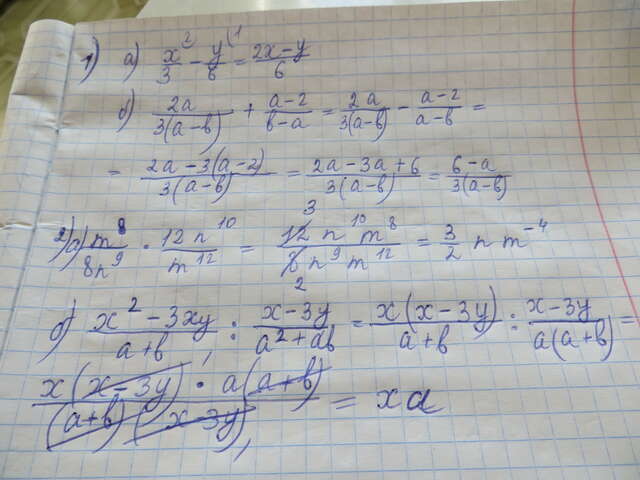 1) а) x/3 - y/6 = (2x-y)/6
б) 2a/(3(a-b)) + (a-2)/(b-a) = 2a/(3(a-b)) - (a-2)/(a-b) =
= (2a-3(a-2))/(3(a-b)) = (2a-3a+6)/(3(a-b)) = (6-a)/(3(a-b))
2) а) m^8/(8n^9) · 12n^10/m^12 = (12 n^10 m^8)/(8 n^9 m^12) = 3/2 n m^-4
б) (x^2-3xy)/(a+b) : (x-3y)/(a^2+ab) = x(x-3y)/(a+b) : (x-3y)/(a(a+b)) =
(x(x-3y) · a(a+b))/((a+b)(x-3y)) = xa